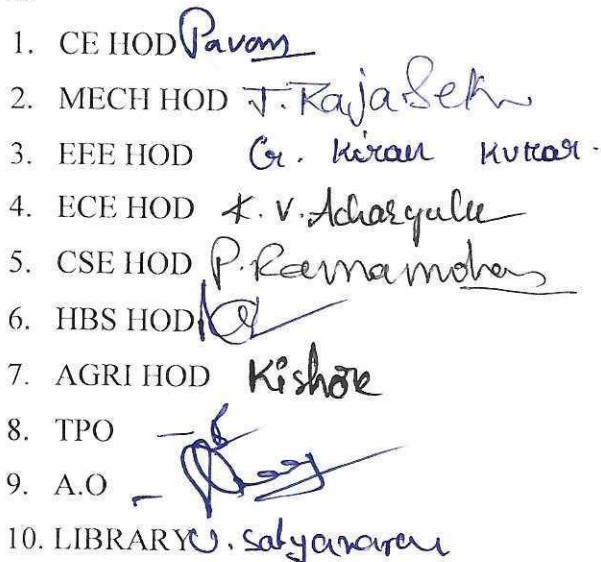 1. CE HOD Pavan
2. MECH HOD J. RajaSek
3. EEE HOD G. Kiran Kumar.
4. ECE HOD K. V. Acharyulu
5. CSE HOD P. Ramamohan
6. HBS HOD
7. AGRI HOD Kishore
8. TPO –
9. A.O –
10. LIBRARY U. Satyanarayan